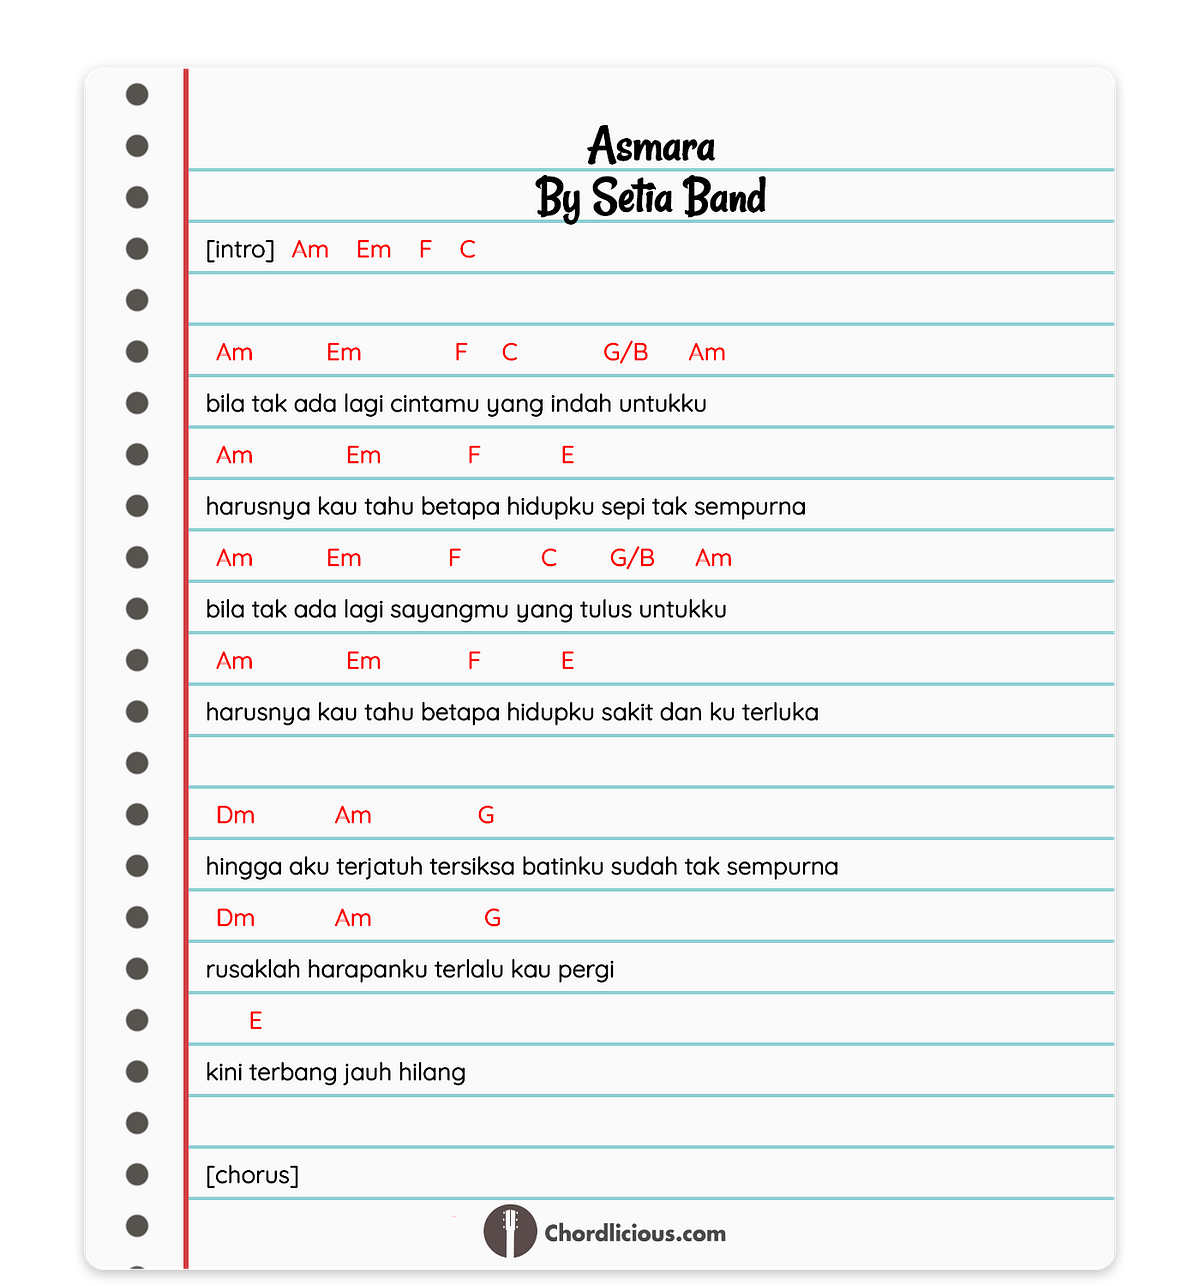 Asmara
By Setia Band
[intro] Am Em F C
Am Em F C G/B Am
bila tak ada lagi cintamu yang indah untukku
Am Em F E
harusnya kau tahu betapa hidupku sepi tak sempurna
Am Em F C G/B Am
bila tak ada lagi sayangmu yang tulus untukku
Am Em F E
harusnya kau tahu betapa hidupku sakit dan ku terluka
Dm Am G
hingga aku terjatuh tersiksa batinku sudah tak sempurna
Dm Am G
rusaklah harapanku terlalu kau pergi
E
kini terbang jauh hilang
[chorus]
Chordlicious.com